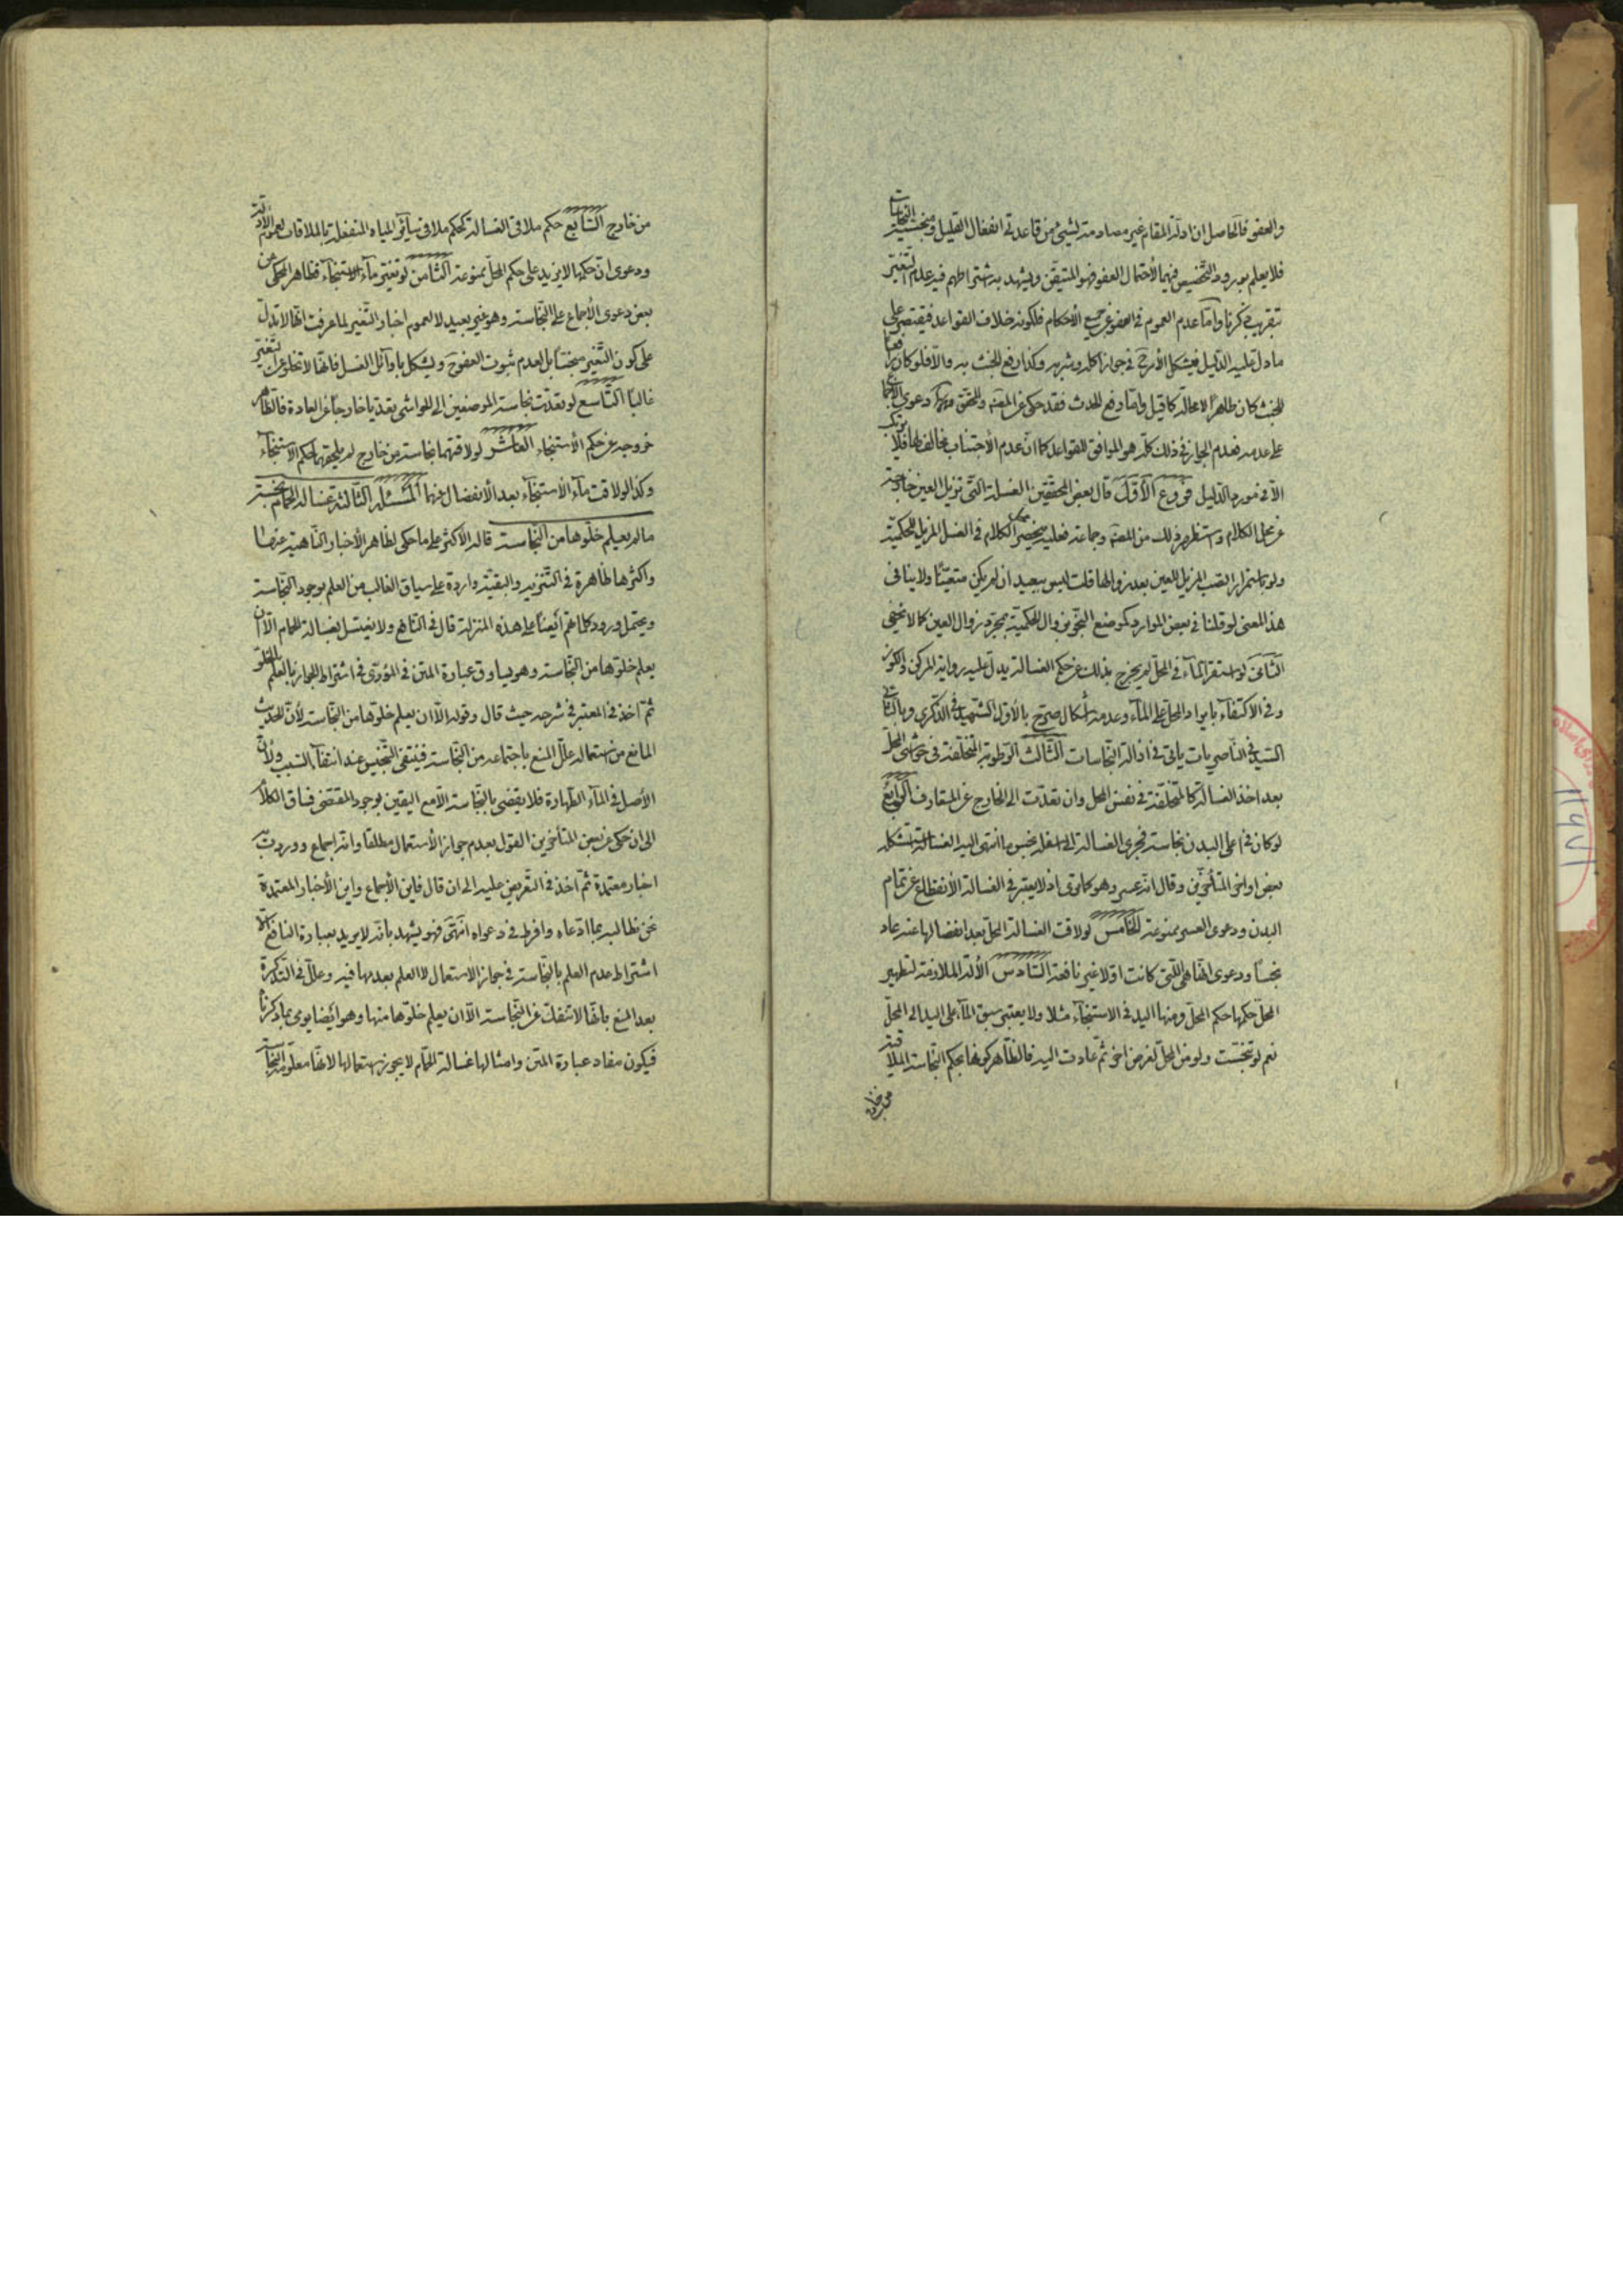 والعفو فالحاصل ان ادلة المقام غير مصادمة لشيء من قاعدتي انفعال القليل ومنجسية النجاسات
فلا يعلم بورود التخصيص فيهما لاحتمال العفو فهو المتيقن ويشهد به اشتراطهم فيه عدم التغير
بتقريب ذكرنا واما عدم العموم في العفو عن جميع الأحكام فلكونه خلاف القواعد فيقتصر على
ما دل عليه الدليل فيشكل الأمر في جواز اكله وشربه وكذا رفع الخبث به والا فلو كان رافعا
للخبث كان طاهرا لا محالة كما قيل واما رفع الحدث فقد حكى عن المعتبر والمنتهى دعوى الاجماع
على عدمه فعدم الجواز في ذلك كله هو الموافق للقواعد كما ان عدم الأجتناب مخالف لها فلا يترك
الا في مورد الدليل فروع الأول قال بعض المحققين الغسلة التي تزيل العين خارجة
عن محل الكلام واستظهر ذلك من المعتبر وجماعة فعليه ينحصر محل الكلام في الغسل المزيل للحكمية
ولو باستمرار الصب المزيل للعين بعد زوالها قلت ليس ببعيد ان لم يكن متعينا ولا ينافي
هذا المعنى لو قلنا في بعض الموارد كموضع النجو بزوال الحكمية بمجرد زوال العين كما لا يخفى
الثاني لو استقر الماء في المحل لم يخرج بذلك عن حكم الغسالة يدل عليه رواية المركن والكوز
وفي الاكتفاء بايراد المحل على الماء وعدمه اشكال صرح بالأول الشهيد في الذكرى وبالثاني
السيد في الناصريات ياتي في ازالة النجاسات الثالث الرطوبة المتخلفة في حواشي المحل
بعد اخذ الغسالة كالمتخلفة في نفس المحل وان تعدت الى الخارج عن المتعارف الرابع
لو كان في اعلى البدن نجاسة فجرى الغسالة الى اسفله نجس ما انتهى اليه الغسالة استشكله
بعض اواخر المتأخرين وقال انه عسر وهو كما ترى اذ لا يعتبر في الغسالة الأنفصال عن تمام
البدن ودعوى العسر ممنوعة الخامس لو لاقت الغسالة المحل بعد انفصالها عنه عاد
نجسا ودعوى انها هي التي كانت اولا غير نافعة السادس الألة الملازمة لتطهير
المحل حكمها حكم المحل ومنها اليد في الاستنجاء مثلا ولا يعتبر سبق الماء على اليد الى المحل
نعم لو تنجست ولو من المحل لغرض اخر ثم عادت اليه فالظاهر كونها بحكم النجاسة الملاقية
من خارج
من خارج السابع حكم ملاقي الغسالة كحكم ملاقي سائر المياه المنفعلة بالملاقات لعموم الأدلة
ودعوى ان حكمها لا يزيد على حكم المحل ممنوعة الثامن لو تغير ماء الاستنجاء فظاهر المحكى عن
بعض دعوى الأجماع على النجاسة وهو غير بعيد لا لعموم اخبار التغير لما عرفت انها لا تدل
على كون التغير منجسا بل لعدم ثبوت العفو ح ويشكل باوائل الغسل فانها لا تخلو عن التغير
غالبا التاسع لو تعدت نجاسة الموضعين الى الحواشي تعديا خارجا عن العادة فالظاهر
خروجه عن حكم الأستنجاء العاشر لو لاقتهما نجاسة من خارج لم يلحقهما حكم الاستنجاء
وكذا لو لاقت ماء الاستنجاء بعد الأنفصال عنهما المسئلة الثالثة غسالة الحمام نجسة
ما لم يعلم خلوها من النجاسة قاله الأكثر على ما حكى لظاهر الأخبار الناهية عنها
واكثرها ظاهرة في التنزيه والبقية واردة على سياق الغالب من العلم بوجود النجاسة
ويحتمل ورود كلماتهم أيضا على هذه المنزلة قال في النافع ولا يغتسل بغسالة الحمام الا ان
يعلم خلوها من النجاسة وهو يساوق عبارة المتن في المؤدى في اشتراط الجواز بالعلم بالخلو
ثم اخذ في المعتبر في شرحه حيث قال وقوله الا ان يعلم خلوها من النجاسة لأن الحديث
المانع من استعماله علل المنع باجتماعه من النجاسة فينتفى التنجيس عند انتفاء السبب ولأن
الأصل في الماء الطهارة فلا يقضى بالنجاسة الا مع اليقين بوجود المقتضى فساق الكلام
الى ان حكى عن بعض المتأخرين القول بعدم جواز الأستعمال مطلقا وانه اجماع ووردت به
اخبار معتمدة ثم اخذ في التعريض عليه الى ان قال فاين الأجماع واين الأخبار المعتمدة
نحن نطالبه بما ادعاه وافرط في دعواه انتهى فهو يشهد بانه لا يريد بعبارة النافع الا
اشتراط عدم العلم بالنجاسة في جواز الاستعمال لا العلم بعدمها فيه وعلل في التذكرة
بعد المنع بانها لا تنفك عن النجاسة الا ان يعلم خلوها منها وهو ايضا يومي بما ذكرنا
فيكون مفاد عبارة المتن وامثالها غسالة الحمام لا يجوز استعمالها لانها معلومة النجاسة